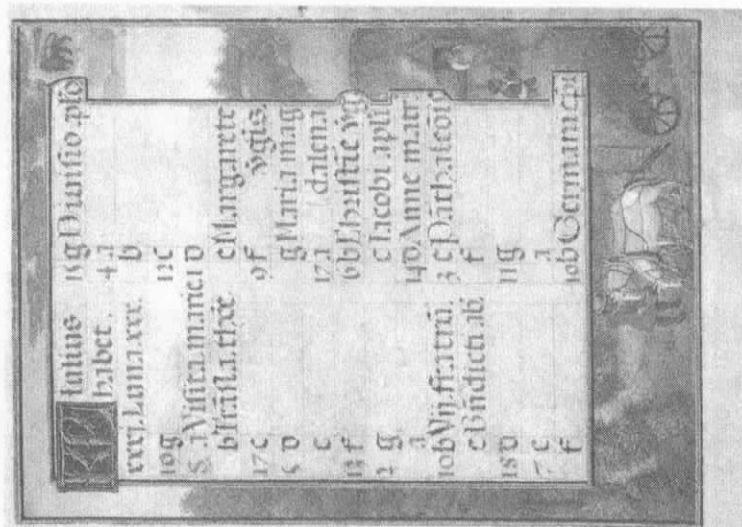 KL Iulius
habet.
xxxj. Luna xxx.
19 g
8 a Visita. marie
b Trãsla. thõe
17 c
5 d
e
13 f
2 g
a
10 b Vij. fratrũ.
c Bñdicti ab.
18 d
7 e
f
15 g Diuisio. aplõ
4 a
b
12 c
1 d
e Margarete
v̄gis.
9 f
g Maria mag
dalena
17 a
6 b Christine vg̃
c Iacobi apl̃i
14 d Anne matr.
3 e
f
11 g
a
19 b Germani ep̃i